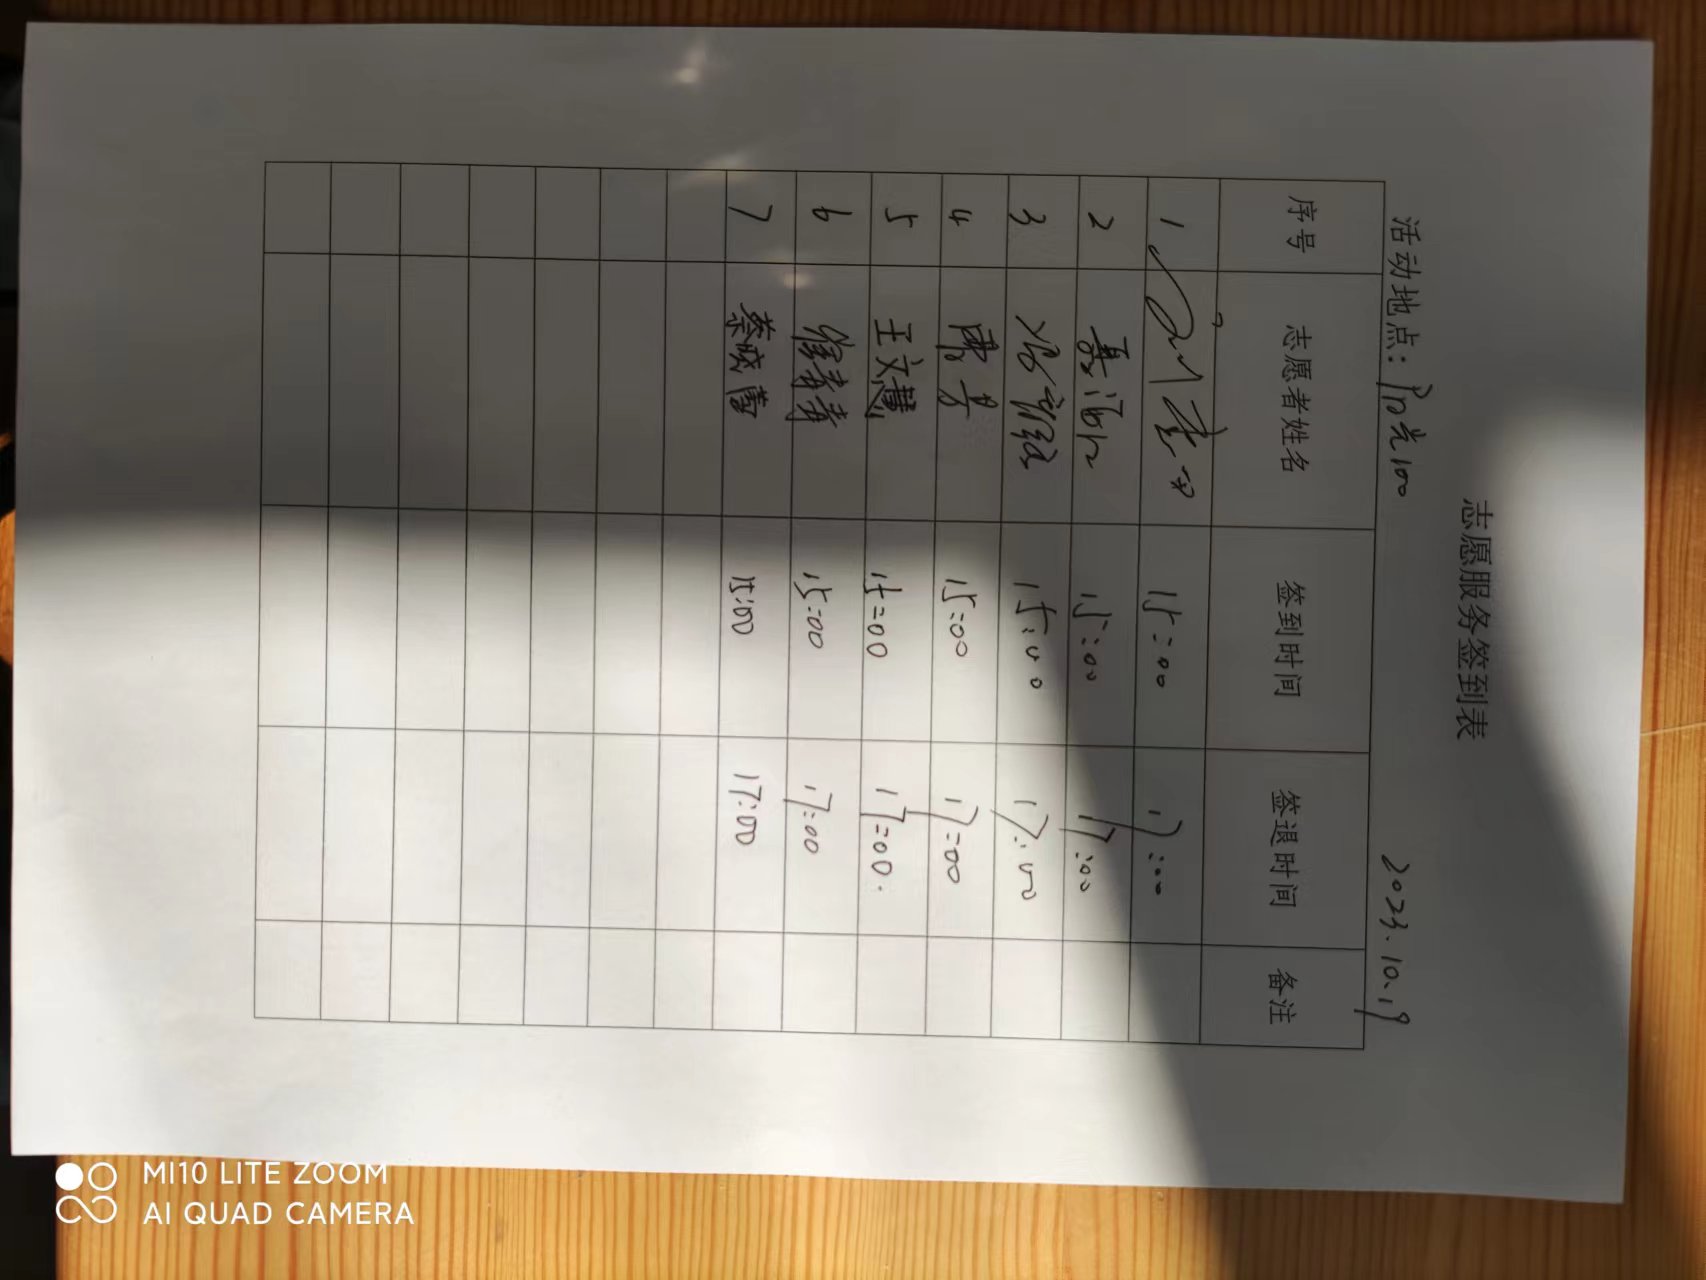 志愿服务签到表
活动地点：阳光100 2023.10.19
序号 志愿者姓名 签到时间 签退时间 备注
1 15:00 17:00
2 15:00 17:00
3 15:00 17:00
4 15:00 17:00
5 王文慧 15:00 17:00.
6 徐春青 15:00 17:00
7 蔡晓茵 15:00 17:00
MI10 LITE ZOOM
AI QUAD CAMERA